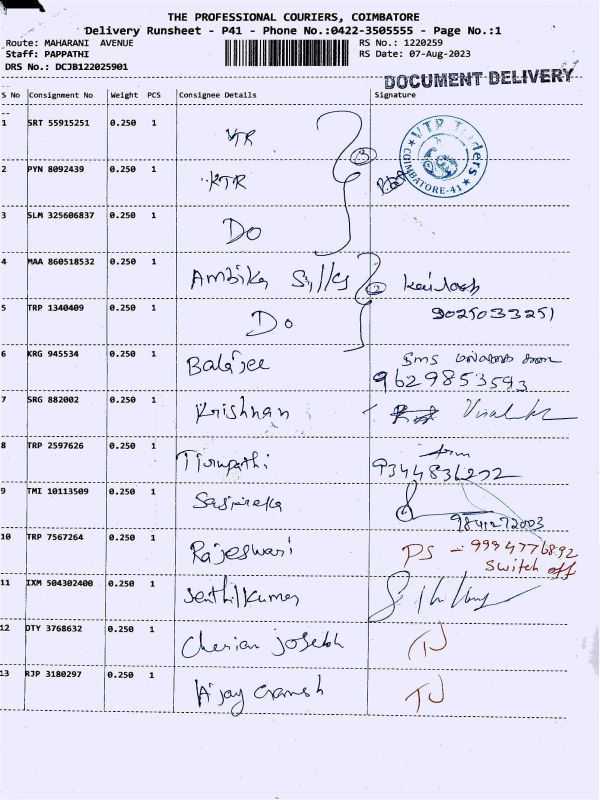 THE PROFESSIONAL COURIERS, COIMBATORE
Delivery Runsheet - P41 - Phone No.:0422-3505555 - Page No.:1
Route: MAHARANI AVENUE RS No.: 1220259
Staff: PAPPATHI RS Date: 07-Aug-2023
DRS No.: DCJB122025901
DOCUMENT DELIVERY
S No Consignment No Weight PCS Consignee Details Signature
1 SRT 55915251 0.250 1 VTR
VTR Traders
COIMBATORE-41
2 PYN 8092439 0.250 1 KTR
3
3 SLM 325606837 0.250 1 Do
4 MAA 860518532 0.250 1 Ambika Silks Kailash
2
5 TRP 1340409 0.250 1 Do 9025033251
6 KRG 945534 0.250 1 Balajee
9629853593
7 SRG 882002 0.250 1 Krishnan
8 TRP 2597626 0.250 1 Tirupathi
9344836272
9 TMI 10113509 0.250 1
9841272003
10 TRP 7567264 0.250 1 Rajeswari PS - 9994776892
Switch off
11 IXM 504302400 0.250 1 Senthilkumar
12 OTY 3768632 0.250 1 Cherian Joseph
13 RJP 3180297 0.250 1